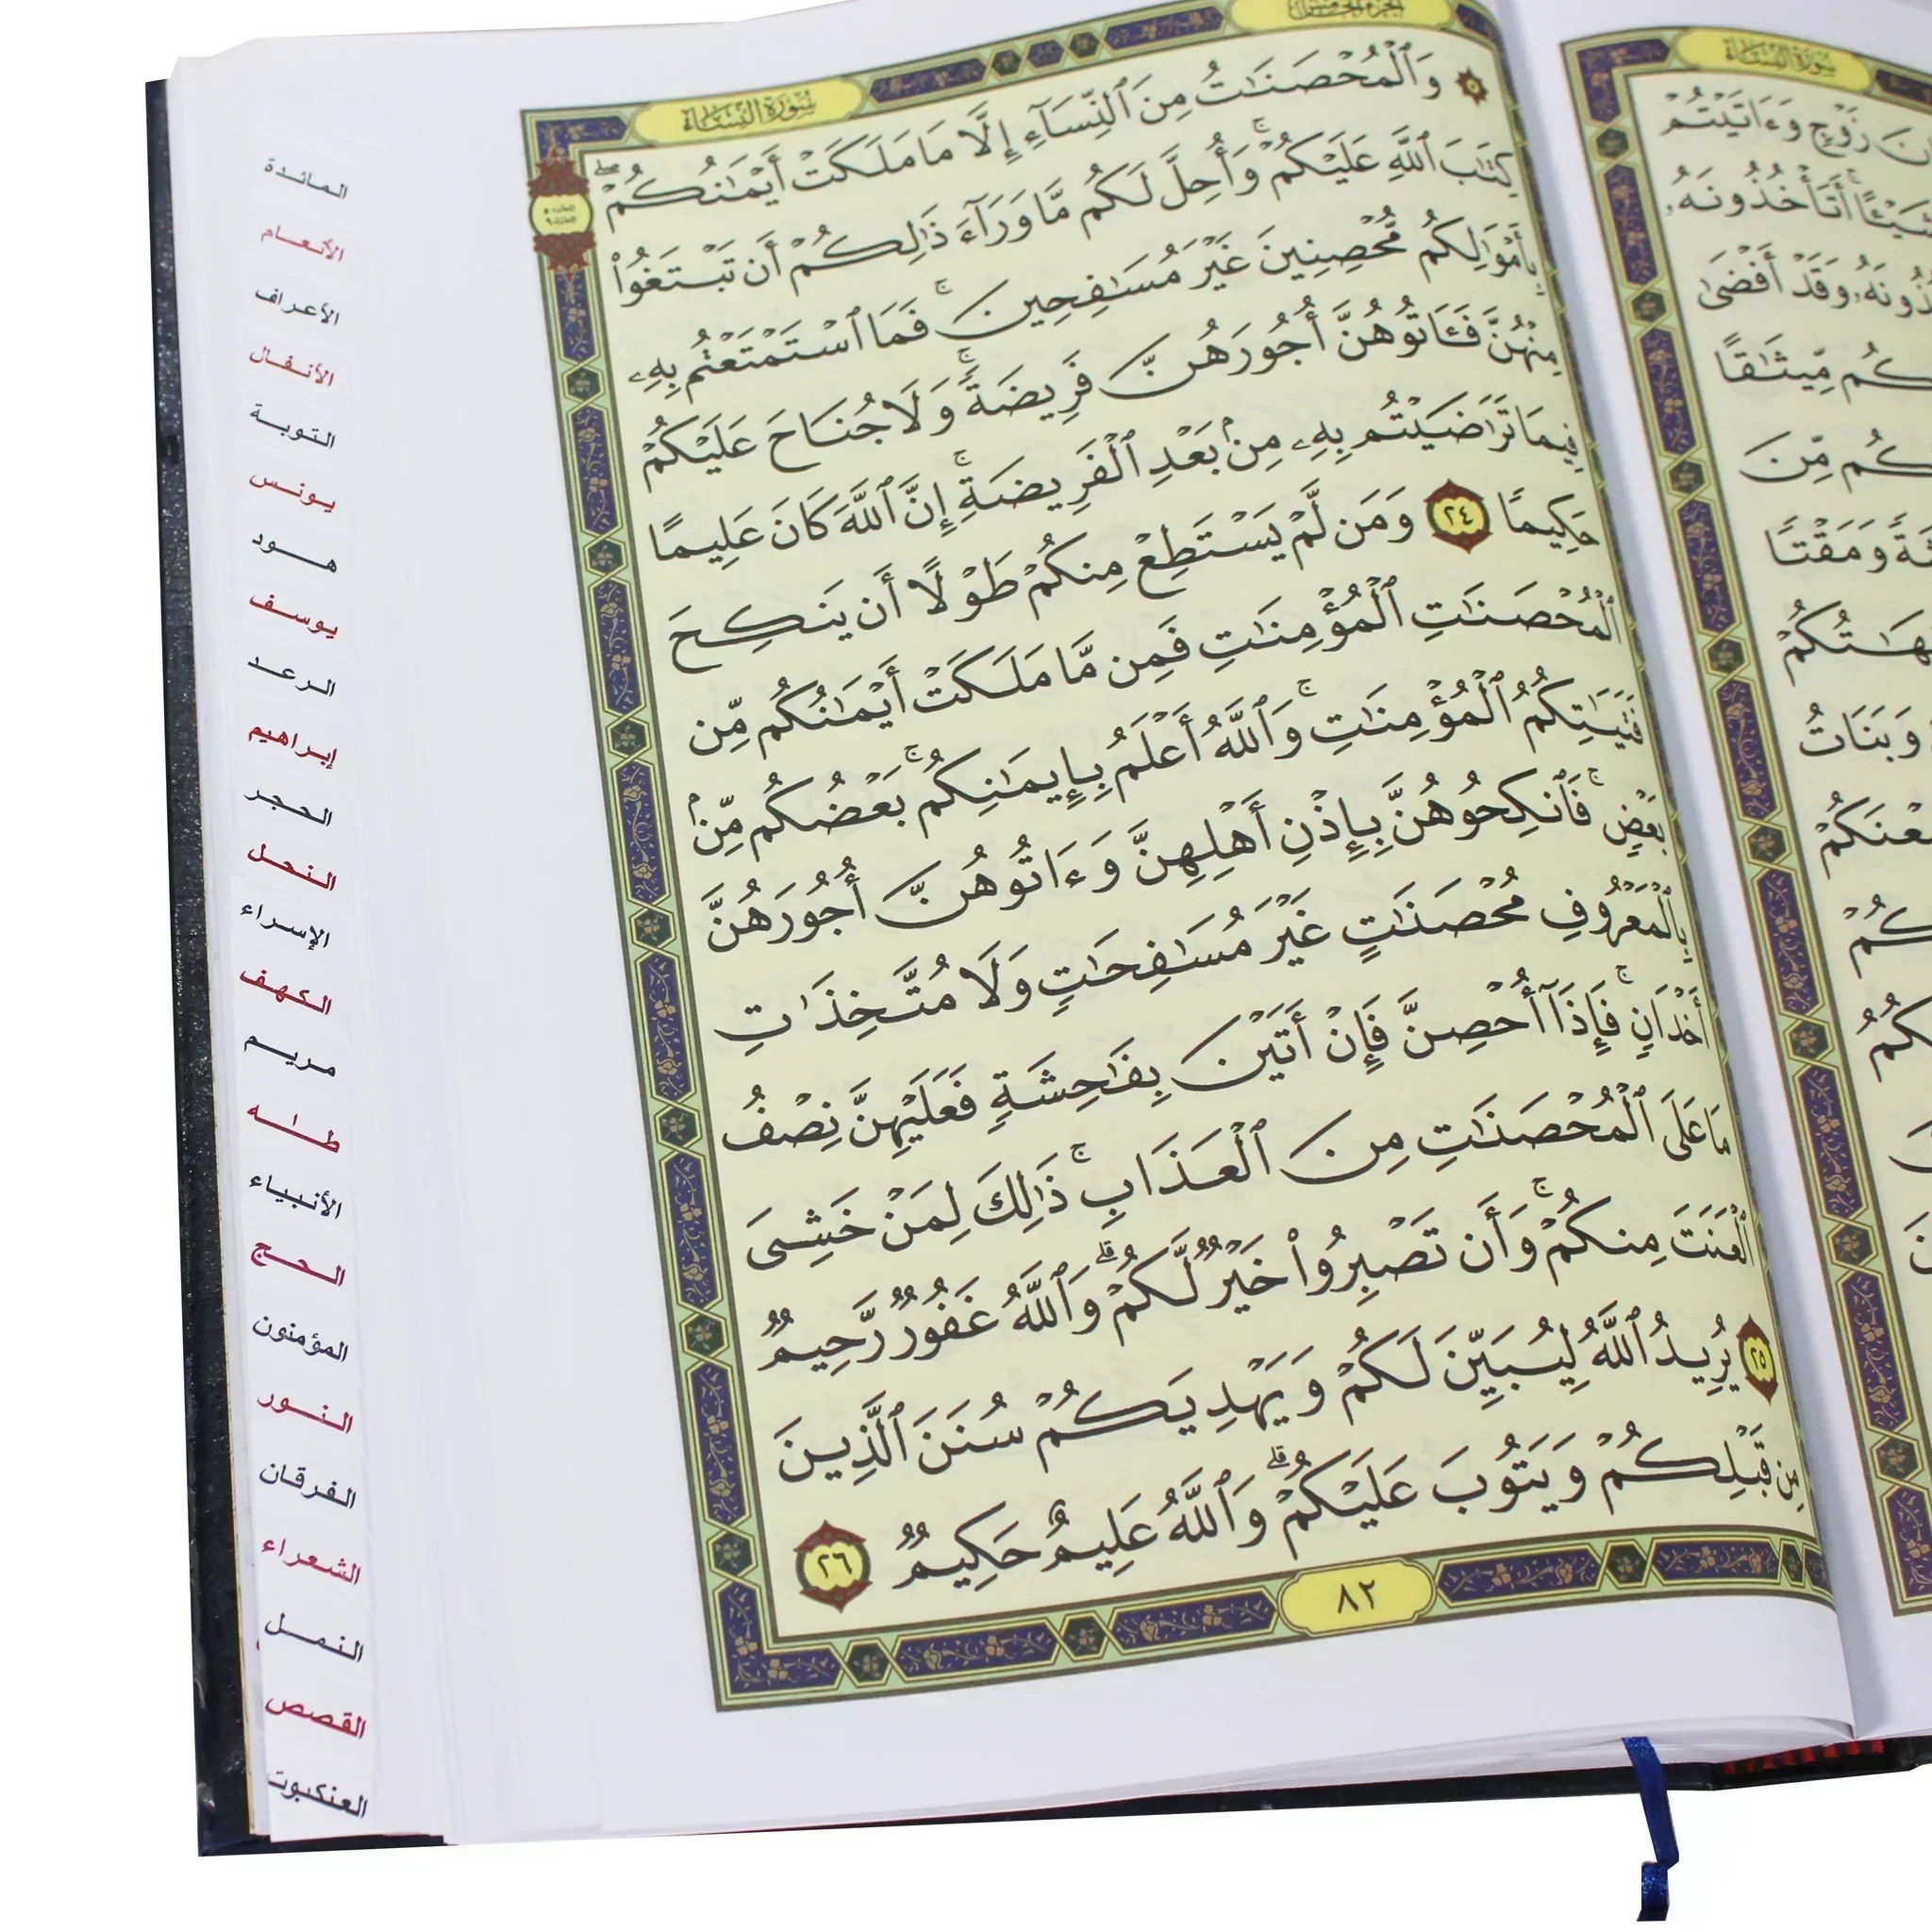 سُورَةُ النِّسَاءِ
۞ وَٱلْمُحْصَنَٰتُ مِنَ ٱلنِّسَآءِ إِلَّا مَا مَلَكَتْ أَيْمَٰنُكُمْ ۖ
كِتَٰبَ ٱللَّهِ عَلَيْكُمْ ۚ وَأُحِلَّ لَكُم مَّا وَرَآءَ ذَٰلِكُمْ أَن تَبْتَغُوا۟
بِأَمْوَٰلِكُم مُّحْصِنِينَ غَيْرَ مُسَٰفِحِينَ ۚ فَمَا ٱسْتَمْتَعْتُم بِهِۦ
مِنْهُنَّ فَـَٔاتُوهُنَّ أُجُورَهُنَّ فَرِيضَةً ۚ وَلَا جُنَاحَ عَلَيْكُمْ
فِيمَا تَرَٰضَيْتُم بِهِۦ مِنۢ بَعْدِ ٱلْفَرِيضَةِ ۚ إِنَّ ٱللَّهَ كَانَ عَلِيمًا
حَكِيمًا ٢٤ وَمَن لَّمْ يَسْتَطِعْ مِنكُمْ طَوْلًا أَن يَنكِحَ
ٱلْمُحْصَنَٰتِ ٱلْمُؤْمِنَٰتِ فَمِن مَّا مَلَكَتْ أَيْمَٰنُكُم مِّن
فَتَيَٰتِكُمُ ٱلْمُؤْمِنَٰتِ ۚ وَٱللَّهُ أَعْلَمُ بِإِيمَٰنِكُم ۚ بَعْضُكُم مِّنۢ
بَعْضٍ ۚ فَٱنكِحُوهُنَّ بِإِذْنِ أَهْلِهِنَّ وَءَاتُوهُنَّ أُجُورَهُنَّ
بِٱلْمَعْرُوفِ مُحْصَنَٰتٍ غَيْرَ مُسَٰفِحَٰتٍ وَلَا مُتَّخِذَٰتِ
أَخْدَانٍ ۚ فَإِذَآ أُحْصِنَّ فَإِنْ أَتَيْنَ بِفَٰحِشَةٍ فَعَلَيْهِنَّ نِصْفُ
مَا عَلَى ٱلْمُحْصَنَٰتِ مِنَ ٱلْعَذَابِ ۚ ذَٰلِكَ لِمَنْ خَشِىَ
ٱلْعَنَتَ مِنكُمْ ۚ وَأَن تَصْبِرُوا۟ خَيْرٌ لَّكُمْ ۗ وَٱللَّهُ غَفُورٌ رَّحِيمٌ
٢٥ يُرِيدُ ٱللَّهُ لِيُبَيِّنَ لَكُمْ وَيَهْدِيَكُمْ سُنَنَ ٱلَّذِينَ
مِن قَبْلِكُمْ وَيَتُوبَ عَلَيْكُمْ ۗ وَٱللَّهُ عَلِيمٌ حَكِيمٌ ٢٦
٨٢
المائدة
الأنعام
الأعراف
الأنفال
التوبة
يونس
هود
يوسف
الرعد
إبراهيم
الحجر
النحل
الإسراء
الكهف
مريم
طه
الأنبياء
الحج
المؤمنون
النور
الفرقان
الشعراء
النمل
القصص
العنكبوت
سُورَةُ النِّسَاءِ
زَوْجٍ وَءَاتَيْتُمْ
أَتَأْخُذُونَهُۥ
وَقَدْ أَفْضَىٰ
مِّيثَٰقًا
مِّنَ
وَمَقْتًا
وَبَنَاتُ